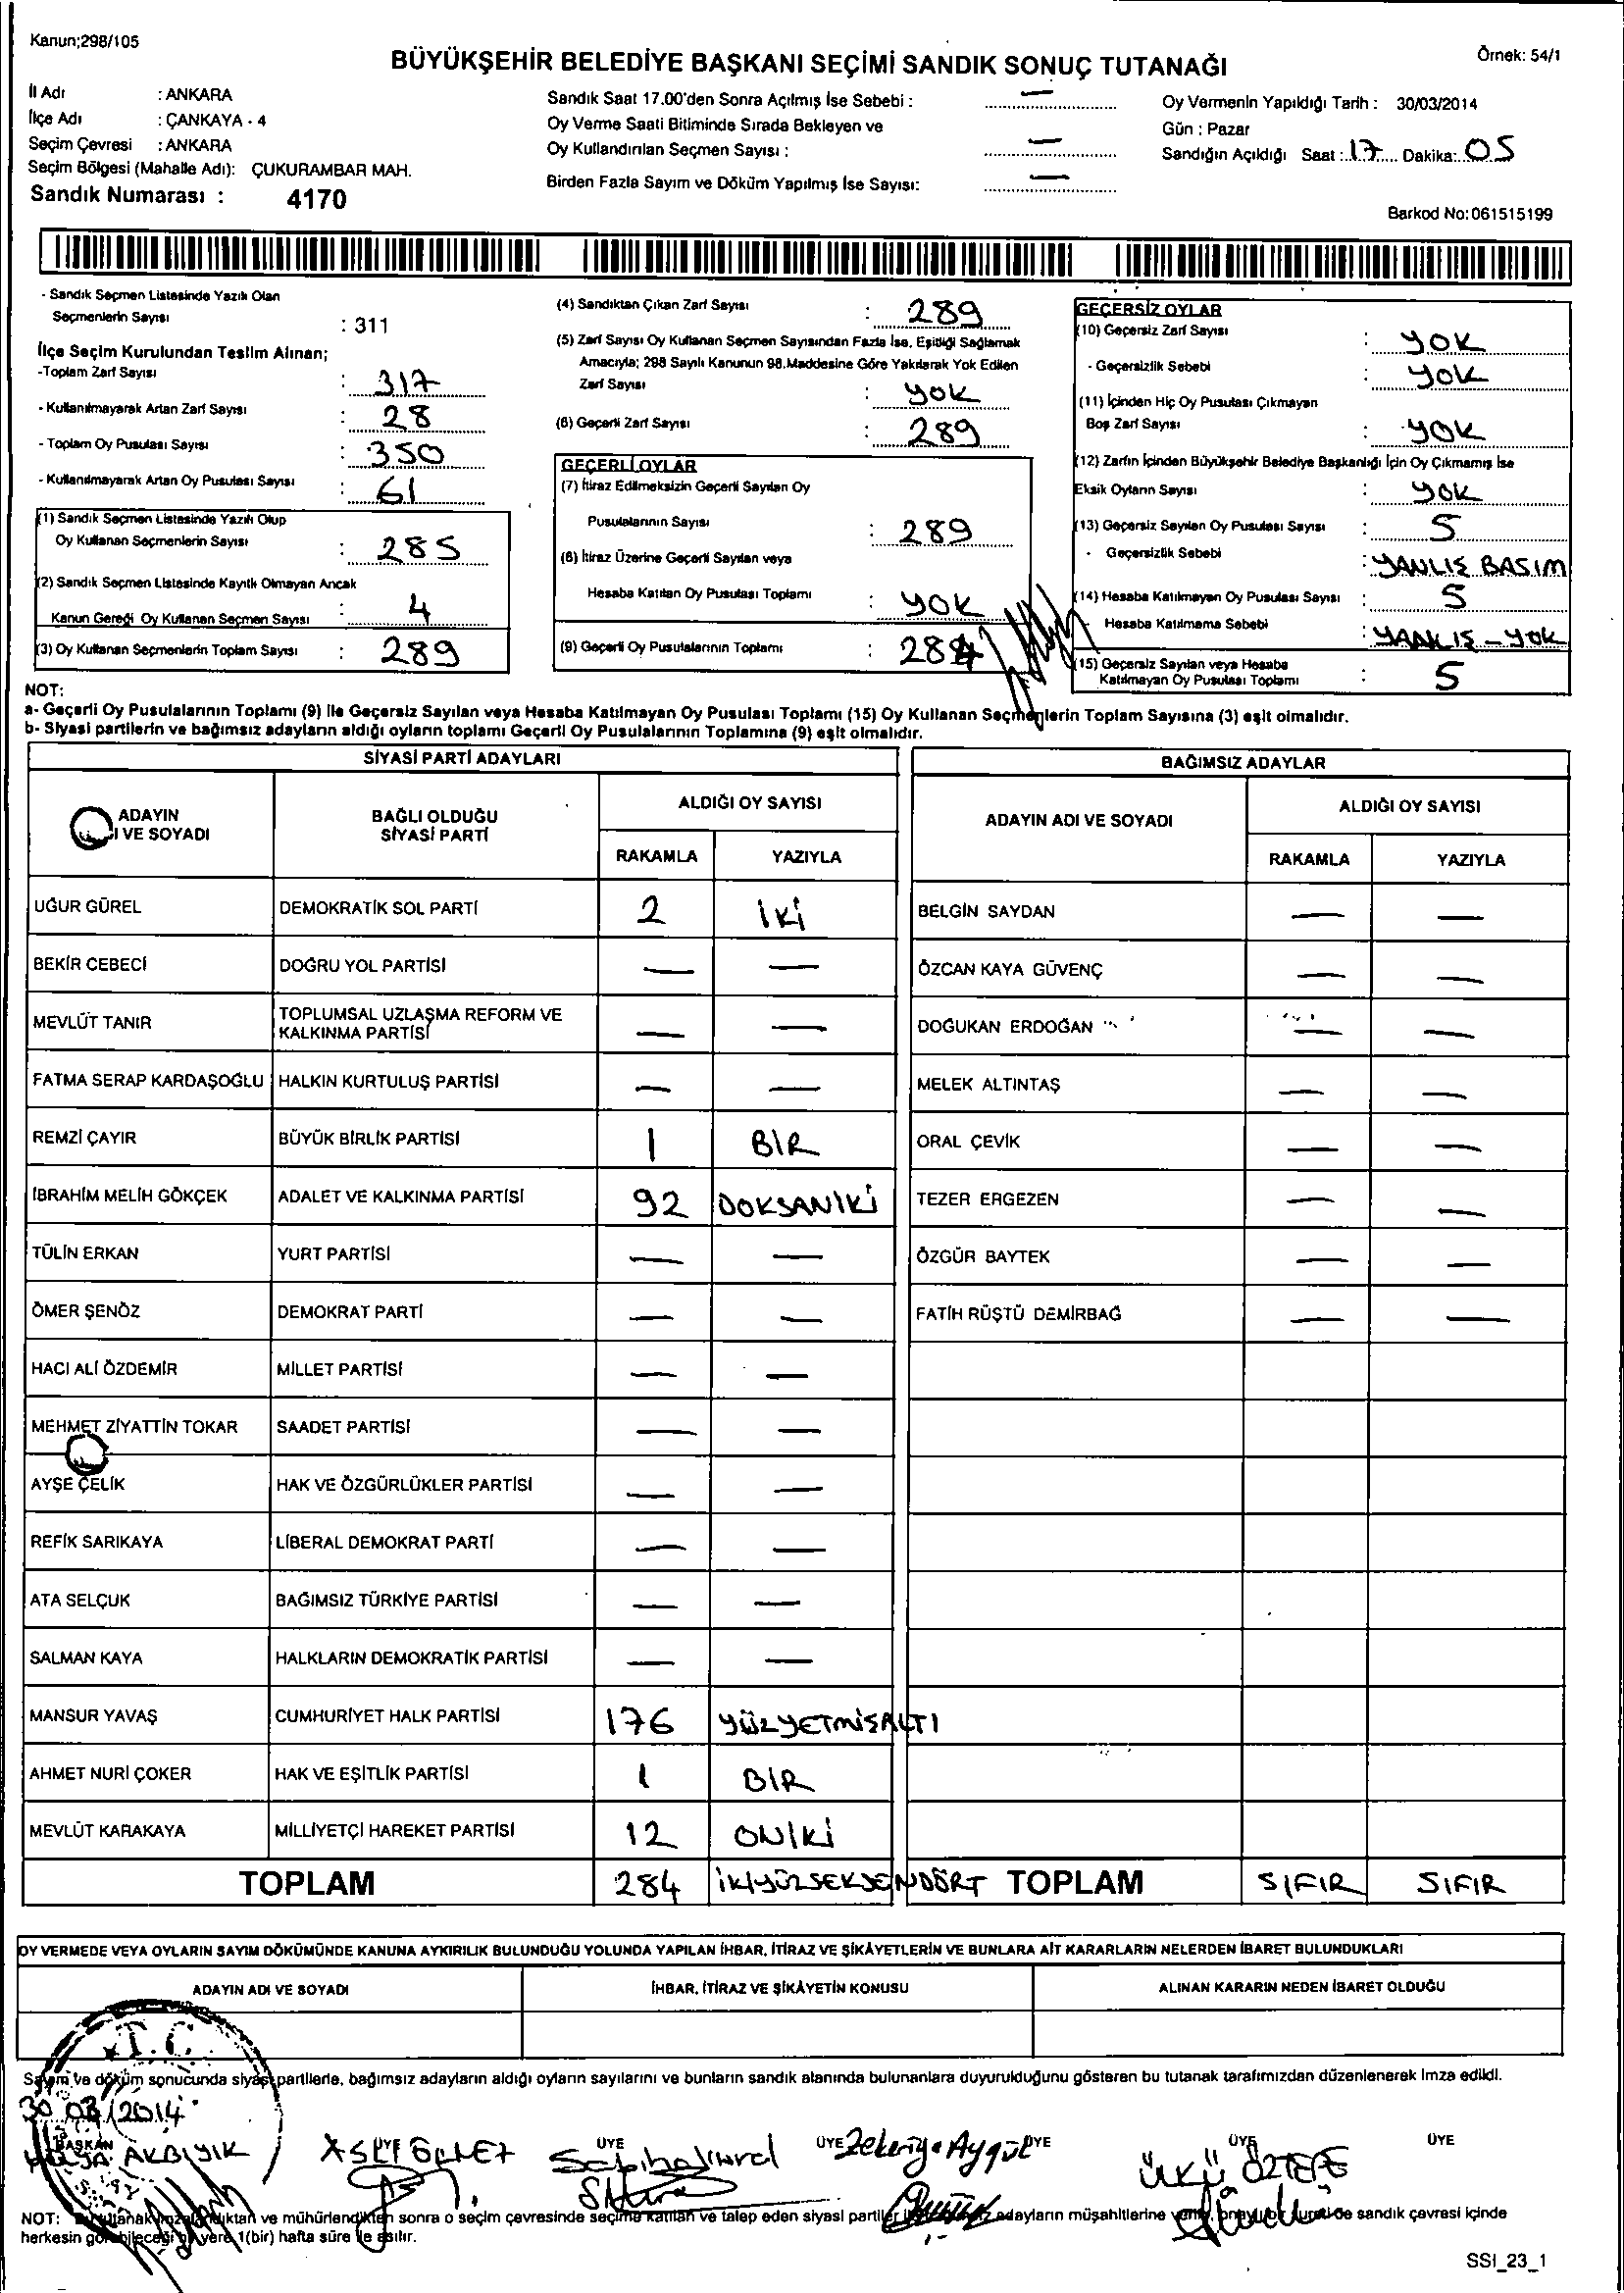 Kanun;298/105
BÜYÜKŞEHİR BELEDİYE BAŞKANI SEÇİMİ SANDIK SONUÇ TUTANAĞI
Örnek: 54/1
İl Adı : ANKARA
İlçe Adı : ÇANKAYA - 4
Seçim Çevresi : ANKARA
Seçim Bölgesi (Mahalle Adı): ÇUKURAMBAR MAH.
Sandık Numarası : 4170
Sandık Saat 17.00'den Sonra Açılmış İse Sebebi : —
Oy Verme Saati Bitiminde Sırada Bekleyen ve
Oy Kullandırılan Seçmen Sayısı : —
Birden Fazla Sayım ve Döküm Yapılmış İse Sayısı: —
Oy Vermenin Yapıldığı Tarih : 30/03/2014
Gün : Pazar
Sandığın Açıldığı Saat : 17 Dakika: 05
Barkod No:061515199
- Sandık Seçmen Listesinde Yazılı Olan
Seçmenlerin Sayısı : 311
İlçe Seçim Kurulundan Teslim Alınan;
-Toplam Zarf Sayısı : 317
- Kullanılmayarak Artan Zarf Sayısı : 28
- Toplam Oy Pusulası Sayısı : 350
- Kullanılmayarak Artan Oy Pusulası Sayısı : 61
(1) Sandık Seçmen Listesinde Yazılı Olup
Oy Kullanan Seçmenlerin Sayısı : 285
(2) Sandık Seçmen Listesinde Kayıtlı Olmayan Ancak
Kanun Gereği Oy Kullanan Seçmen Sayısı : 4
(3) Oy Kullanan Seçmenlerin Toplam Sayısı : 289
(4) Sandıktan Çıkan Zarf Sayısı : 289
(5) Zarf Sayısı Oy Kullanan Seçmen Sayısından Fazla İse, Eşitliği Sağlamak
Amacıyla; 298 Sayılı Kanunun 98.Maddesine Göre Yakılarak Yok Edilen
Zarf Sayısı : YOK
(6) Geçerli Zarf Sayısı : 289
GEÇERLİ OYLAR
(7) İtiraz Edilmeksizin Geçerli Sayılan Oy
Pusulalarının Sayısı : 289
(8) İtiraz Üzerine Geçerli Sayılan veya
Hesaba Katılan Oy Pusulası Toplamı : YOK
(9) Geçerli Oy Pusulalarının Toplamı : 284
GEÇERSİZ OYLAR
(10) Geçersiz Zarf Sayısı : YOK
- Geçersizlik Sebebi : YOK
(11) İçinden Hiç Oy Pusulası Çıkmayan
Boş Zarf Sayısı : YOK
(12) Zarfın İçinden Büyükşehir Belediye Başkanlığı İçin Oy Çıkmamış İse
Eksik Oyların Sayısı : YOK
(13) Geçersiz Sayılan Oy Pusulası Sayısı : 5
- Geçersizlik Sebebi : YANLIŞ BASIM
(14) Hesaba Katılmayan Oy Pusulası Sayısı : 5
- Hesaba Katılmama Sebebi : YANLIŞ - YOK
(15) Geçersiz Sayılan veya Hesaba
Katılmayan Oy Pusulası Toplamı : 5
NOT:
a- Geçerli Oy Pusulalarının Toplamı (9) ile Geçersiz Sayılan veya Hesaba Katılmayan Oy Pusulası Toplamı (15) Oy Kullanan Seçmenlerin Toplam Sayısına (3) eşit olmalıdır.
b- Siyasi partilerin ve bağımsız adayların aldığı oyların toplamı Geçerli Oy Pusulalarının Toplamına (9) eşit olmalıdır.
SİYASİ PARTİ ADAYLARI
ADAYIN I VE SOYADI BAĞLI OLDUĞU SİYASİ PARTİ ALDIĞI OY SAYISI RAKAMLA YAZIYLA
UĞUR GÜREL DEMOKRATİK SOL PARTİ 2 İKİ
BEKİR CEBECİ DOĞRU YOL PARTİSİ — —
MEVLÜT TANIR TOPLUMSAL UZLAŞMA REFORM VE KALKINMA PARTİSİ — —
FATMA SERAP KARDAŞOĞLU HALKIN KURTULUŞ PARTİSİ — —
REMZİ ÇAYIR BÜYÜK BİRLİK PARTİSİ 1 BİR
İBRAHİM MELİH GÖKÇEK ADALET VE KALKINMA PARTİSİ 92 DOKSANİKİ
TÜLİN ERKAN YURT PARTİSİ — —
ÖMER ŞENÖZ DEMOKRAT PARTİ — —
HACI ALİ ÖZDEMİR MİLLET PARTİSİ — —
MEHMET ZİYATTİN TOKAR SAADET PARTİSİ — —
AYŞE ÇELİK HAK VE ÖZGÜRLÜKLER PARTİSİ — —
REFİK SARIKAYA LİBERAL DEMOKRAT PARTİ — —
ATA SELÇUK BAĞIMSIZ TÜRKİYE PARTİSİ — —
SALMAN KAYA HALKLARIN DEMOKRATİK PARTİSİ — —
MANSUR YAVAŞ CUMHURİYET HALK PARTİSİ 176 YÜZYETMİŞALTI
AHMET NURİ ÇOKER HAK VE EŞİTLİK PARTİSİ 1 BİR
MEVLÜT KARAKAYA MİLLİYETÇİ HAREKET PARTİSİ 12 ONİKİ
TOPLAM 284 İKİYÜZSEKSENDÖRT
BAĞIMSIZ ADAYLAR
ADAYIN ADI VE SOYADI ALDIĞI OY SAYISI RAKAMLA YAZIYLA
BELGİN SAYDAN — —
ÖZCAN KAYA GÜVENÇ — —
DOĞUKAN ERDOĞAN — —
MELEK ALTINTAŞ — —
ORAL ÇEVİK — —
TEZER ERGEZEN — —
ÖZGÜR BAYTEK — —
FATİH RÜŞTÜ DEMİRBAĞ — —
TOPLAM SIFIR SIFIR
OY VERMEDE VEYA OYLARIN SAYIM DÖKÜMÜNDE KANUNA AYKIRILIK BULUNDUĞU YOLUNDA YAPILAN İHBAR, İTİRAZ VE ŞİKÂYETLERİN VE BUNLARA AİT KARARLARIN NELERDEN İBARET BULUNDUKLARI
ADAYIN ADI VE SOYADI İHBAR, İTİRAZ VE ŞİKÂYETİN KONUSU ALINAN KARARIN NEDEN İBARET OLDUĞU
T.C.
Sayım ve döküm sonucunda siyasi partilerle, bağımsız adayların aldığı oyların sayılarını ve bunların sandık alanında bulunanlara duyurulduğunu gösteren bu tutanak tarafımızdan düzenlenerek imza edildi.
30.03/2014
BAŞKAN ÜYE ÜYE ÜYE ÜYE ÜYE ÜYE
HÜLYA AKBIYIK Zekeriya Aygül ÜLKÜ ÖZTEPE
NOT: Bu tutanak imzalandıktan ve mühürlendikten sonra o seçim çevresinde seçime katılan ve talep eden siyasi partiler adayların müşahitlerine sandık çevresi içinde
herkesin görebileceği bir yere 1(bir) hafta süre ile asılır.
SSI_23_1